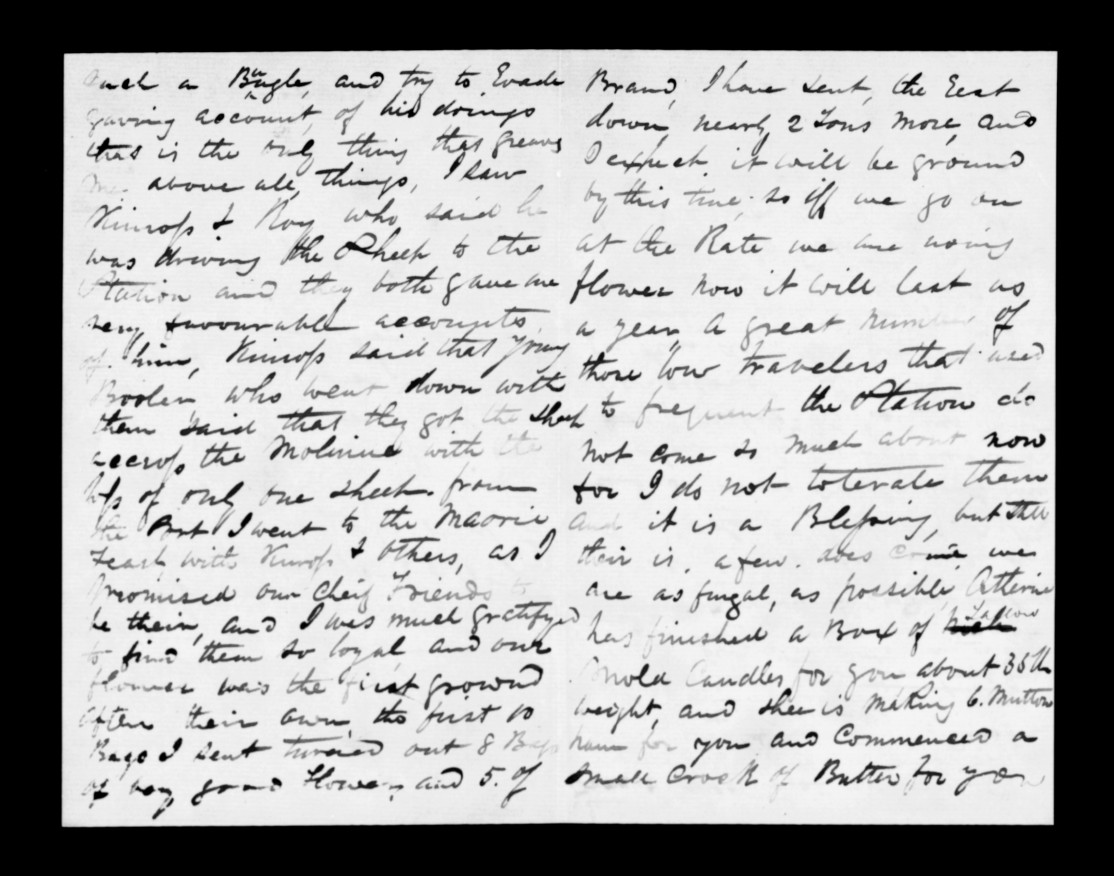 such a Baugle, and try to Evade
gaving account, of his doings
that is the only thing that greaves
me above all, things, I saw
Kinross & Roy who said he
was driving the Sheep to the
Station and they both gave me
very favourable accounts.
of him, Kinross said that young
who went down with
them said that they got the sheep
accross the with the
loss of only one sheep. from
the Port I went to the Maorie
feast with Kinross & others, as I
promised our Cheif Friends to
be their, and I was much gratifyed
to find them so loyal, and our
flower was the first ground
after their own, the first 10
Bags I sent turned out 8 Bags
of very good flower, and 5. of
Brand, I have sent, the Rest
down, nearly 2 Tons more, and
I expect it will be ground
by this time. so iff we go on
at the Rate we are using
flower now it will last us
a year, A great number of
those low travelers that used
to frequent the Station do
not come so much about now
for I do not tolerate them
and it is a Blessing, but still
their is. a few. does come wee
are as frugal, as possible,
has finished a Box of Tallow
Mold Candles for you about 35 lb
weight, and shee is making 6. Mutton
ham for you and Commenced a
Small Crock of Butter for you